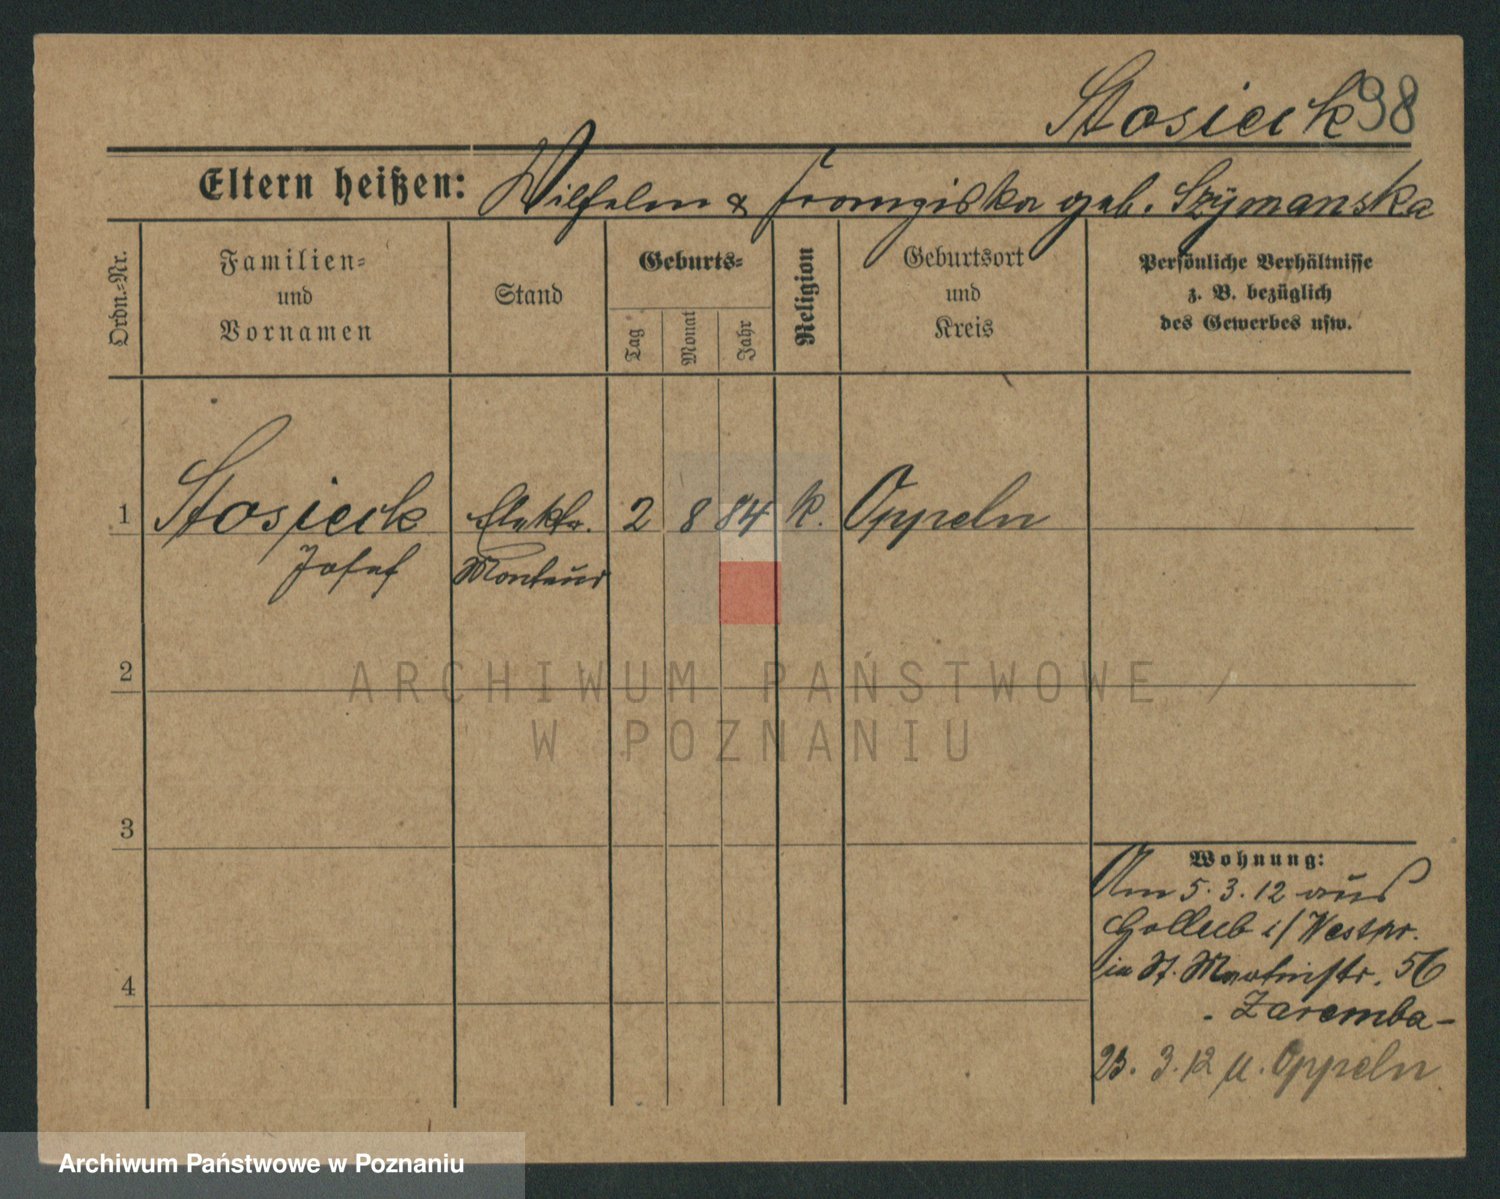 Stosieck 98
Eltern heißen: Wilhelm & Franziska geb. Szymanska
Ordn.-Nr.
Familien- und Vornamen
Stand
Geburts-
Tag
Monat
Jahr
Religion
Geburtsort und Kreis
Persönliche Verhältnisse z. B. bezüglich des Gewerbes usw.
1 Stosieck Elektr. 2 8 84 k. Oppeln
Josef Monteur
2
ARCHIWUM PAŃSTWOWE /
W POZNANIU
3
Wohnung:
Am 5.3.12 aus
Gollub i/Westpr.
in St. Martinstr. 56
- Zaremba -
4
23. 3. 12 n. Oppeln
Archiwum Państwowe w Poznaniu